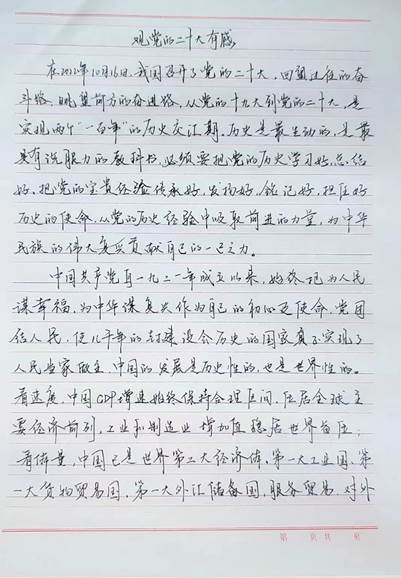 观党的二十大有感
在2022年10月16日,我国召开了党的二十大,回望过往的奋
斗路,眺望前方的奋进路,从党的十九大到党的二十大,是
实现两个“一百年”的历史交汇期。历史是最生动的,是最
具有说服力的教科书,必须要把党的历史学习好,总结
好,把党的宝贵经验传承好,发扬好,铭记好,担负好
历史的使命,从党的历史经验中吸取前进的力量,为中华
民族的伟大复兴贡献自己的一己之力。
中国共产党自一九二一年成立以来,始终把为人民
谋幸福,为中华谋复兴作为自己的初心使命,党团
结人民,使几千年的封建设会历史的国家真正实现了
人民当家做主,中国的发展是历史性的,也是世界性的。
看速度,中国GDP增速始终保持合理区间,位居全球主
要经济前列,工业和制造业增加值稳居世界首位;
看体量,中国已是世界第二大经济体,第一大工业国,第
一大货物贸易国,第一大外汇储备国,服务贸易,对外
第 页 共 页